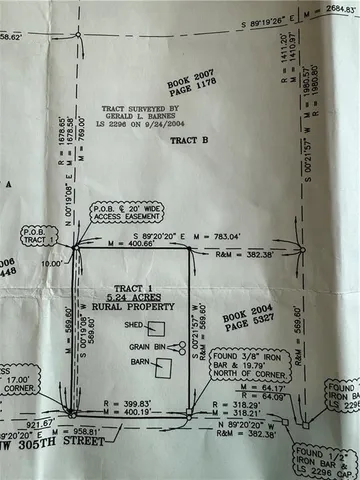 58.62'
S 89°19'26" E
M = 2684.83'
R = 1411.20'
M = 1410.97'
R = 1678.65'
M = 1678.58'
M = 769.00'
N 00°19'08" E
BOOK 2007
PAGE 1178
TRACT SURVEYED BY
GERALD L. BARNES
LS 2296 ON 9/24/2004
TRACT B
M = 1980.57'
R = 1980.80'
S 00°21'57" W
A
P.O.B. ℄ 20' WIDE
ACCESS EASEMENT
P.O.B.
TRACT 1
S 89°20'20" E M = 783.04'
M = 400.66'
R&M = 382.38'
10.00'
006
448
TRACT 1
5.24 ACRES
RURAL PROPERTY
SHED
GRAIN BIN
BARN
M = 569.60'
S 00°19'08" W
569.60'
S 00°21'57" W
569.60'
R&M = 569.60'
BOOK 2004
PAGE 5327
FOUND 3/8" IRON
BAR & 19.79'
NORTH OF CORNER.
CESS
17.00'
CORNER
M = 64.17'
R = 64.09'
R = 399.83'
M = 400.19'
R = 318.29'
M = 318.21'
921.67'
M = 958.81'
9°20'20" E
N 89°20'20" W
R&M = 382.38'
NW 305TH STREET
FOUND
IRON BA
LS 2295
FOUND 1/2"
IRON BAR &
LS 2296 CAP.